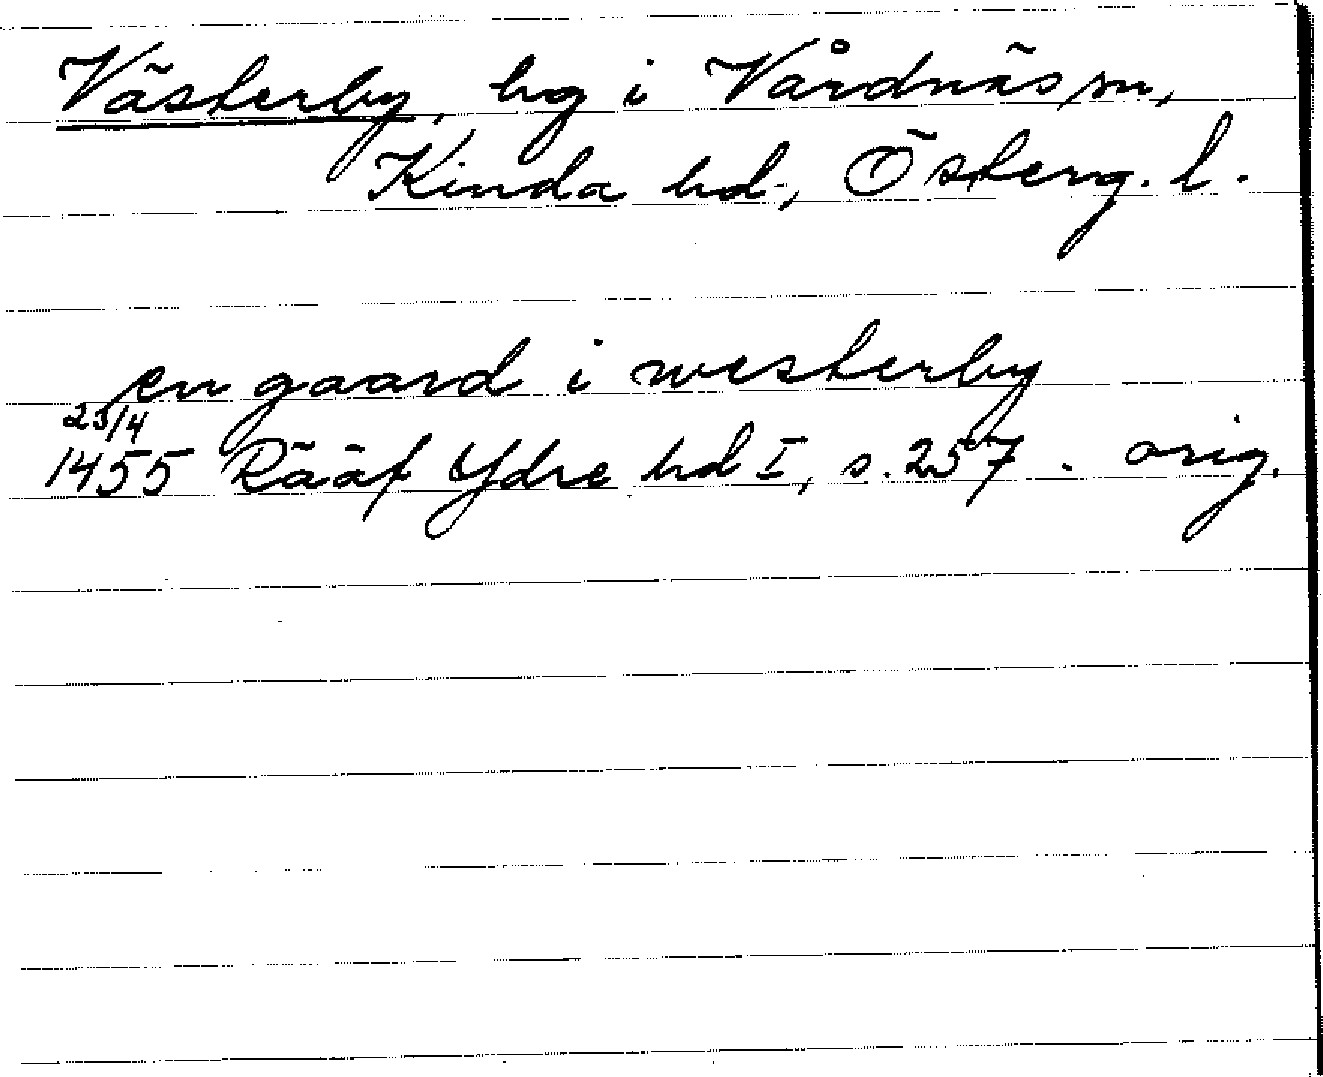 Västerby, hg i Vårdnäs sn,
Kinda hd, Österg. l.
en gaard i westerby
23/4
1455 Rääf Ydre hd I, s. 257. orig.